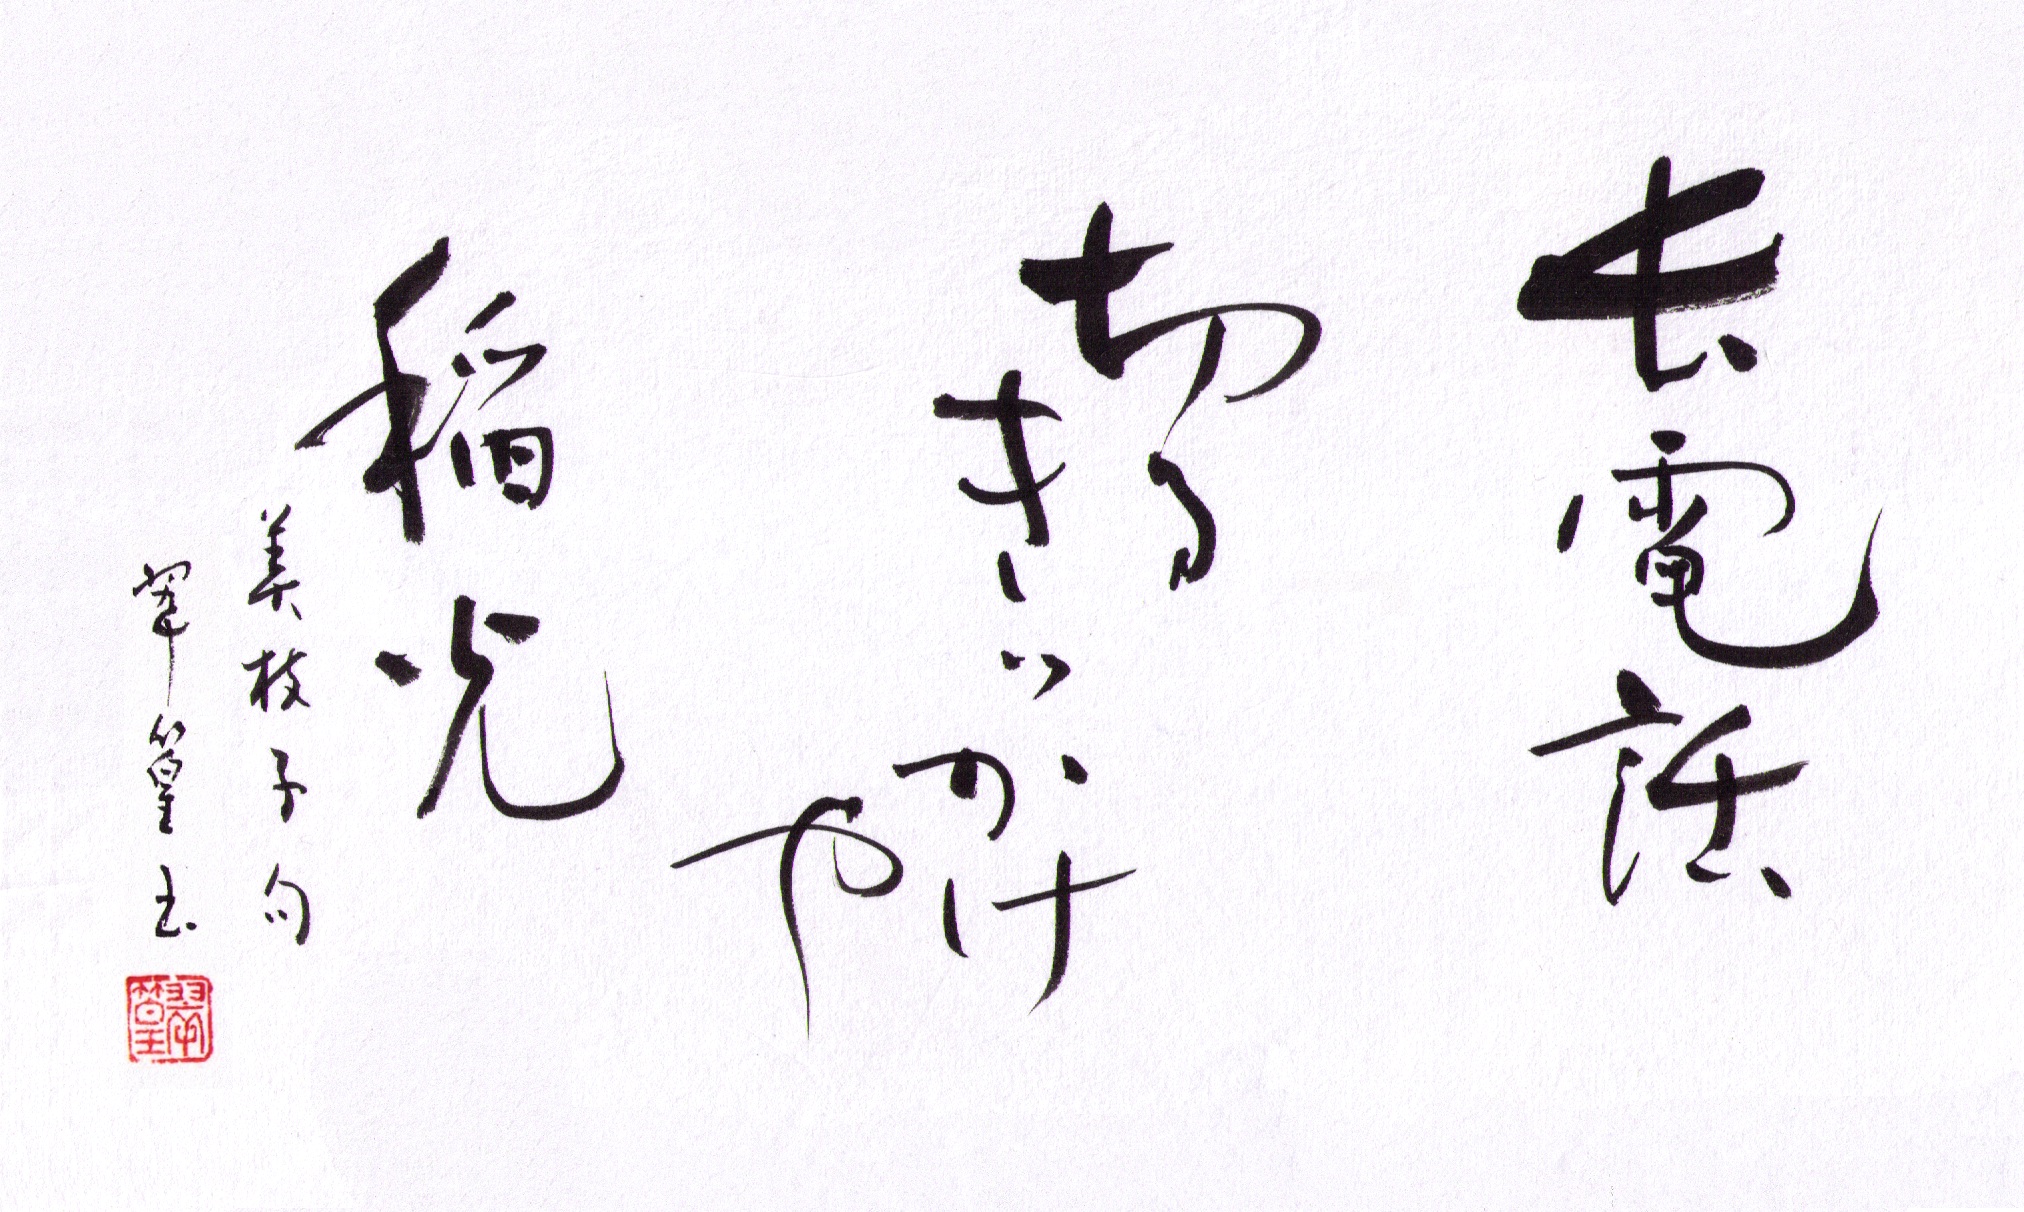 長電話
切る
きっかけ
や
稲光
美枝子句
翠篁書
翠篁